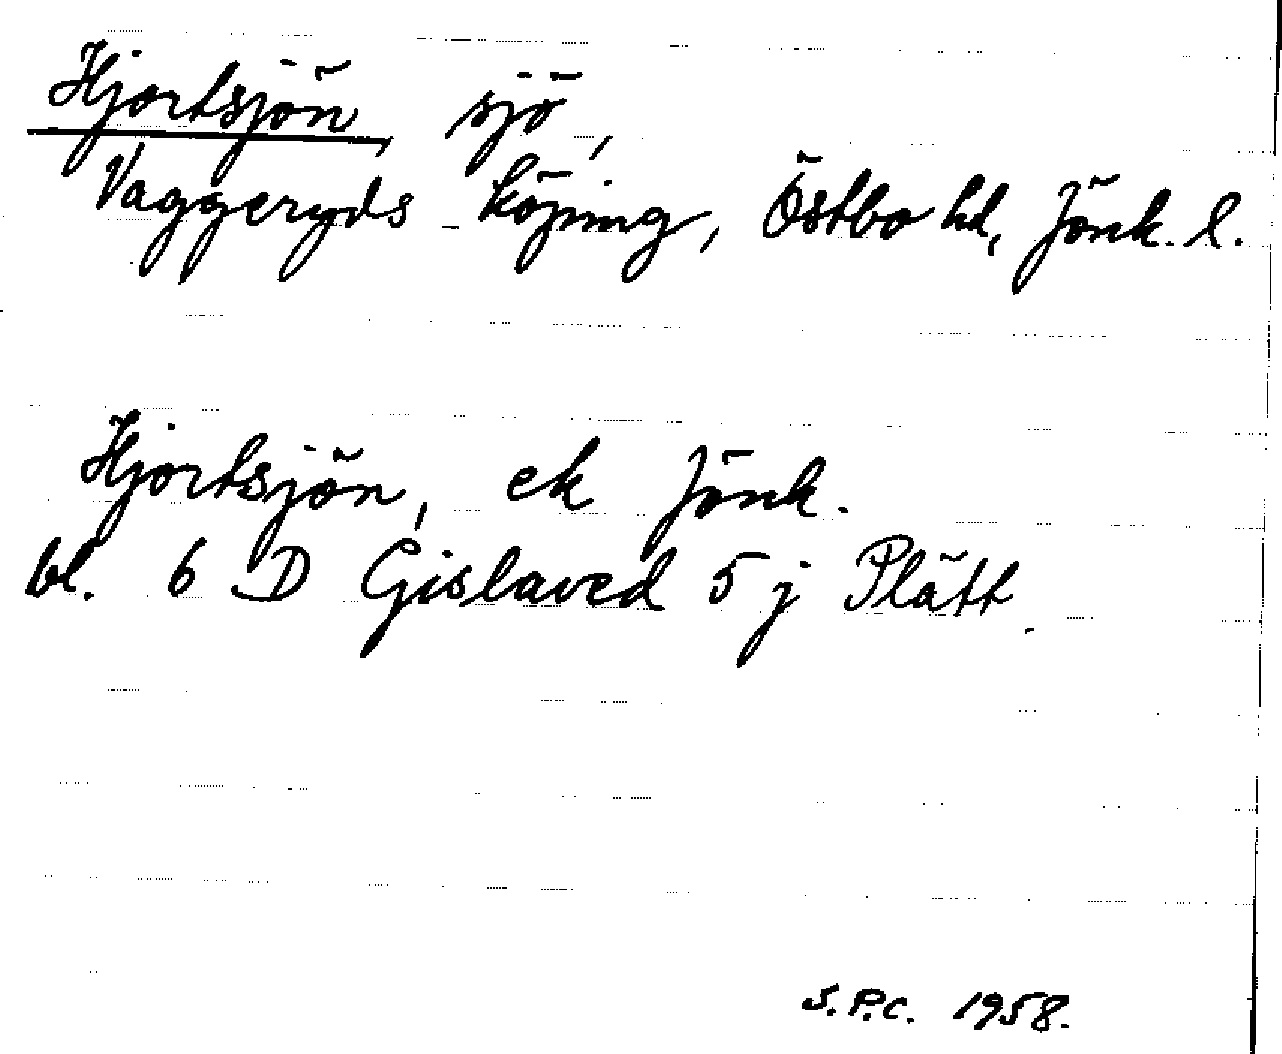 Hjortsjön, sjö,
Vaggeryds köping, Östbo hd, Jönk. l.
Hjortsjön, ek Jönk.
bl. 6 D Gislaved 5 j Plätt.
S.P.C. 1958.